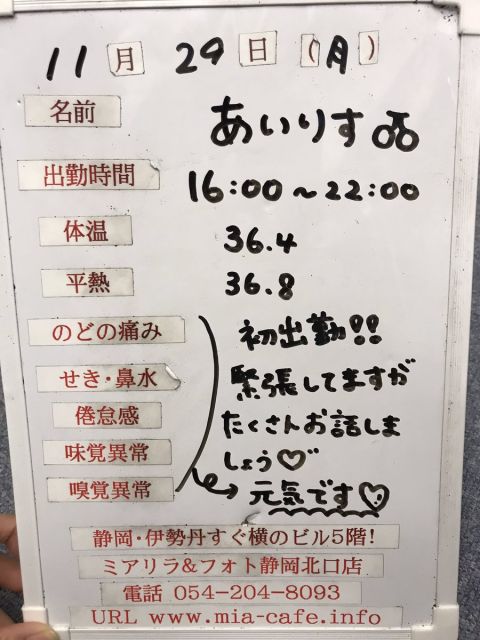 11月29日(月)
名前 あいりす
出勤時間 16:00~22:00
体温 36.4
平熱 36.8
のどの痛み 初出勤!!
せき・鼻水 緊張してますが
倦怠感 たくさんお話しま
味覚異常 しょう♡
嗅覚異常 元気です♡
静岡・伊勢丹すぐ横のビル5階!
ミアリラ&フォト静岡北口店
電話 054-204-8093
URL www.mia-cafe.info